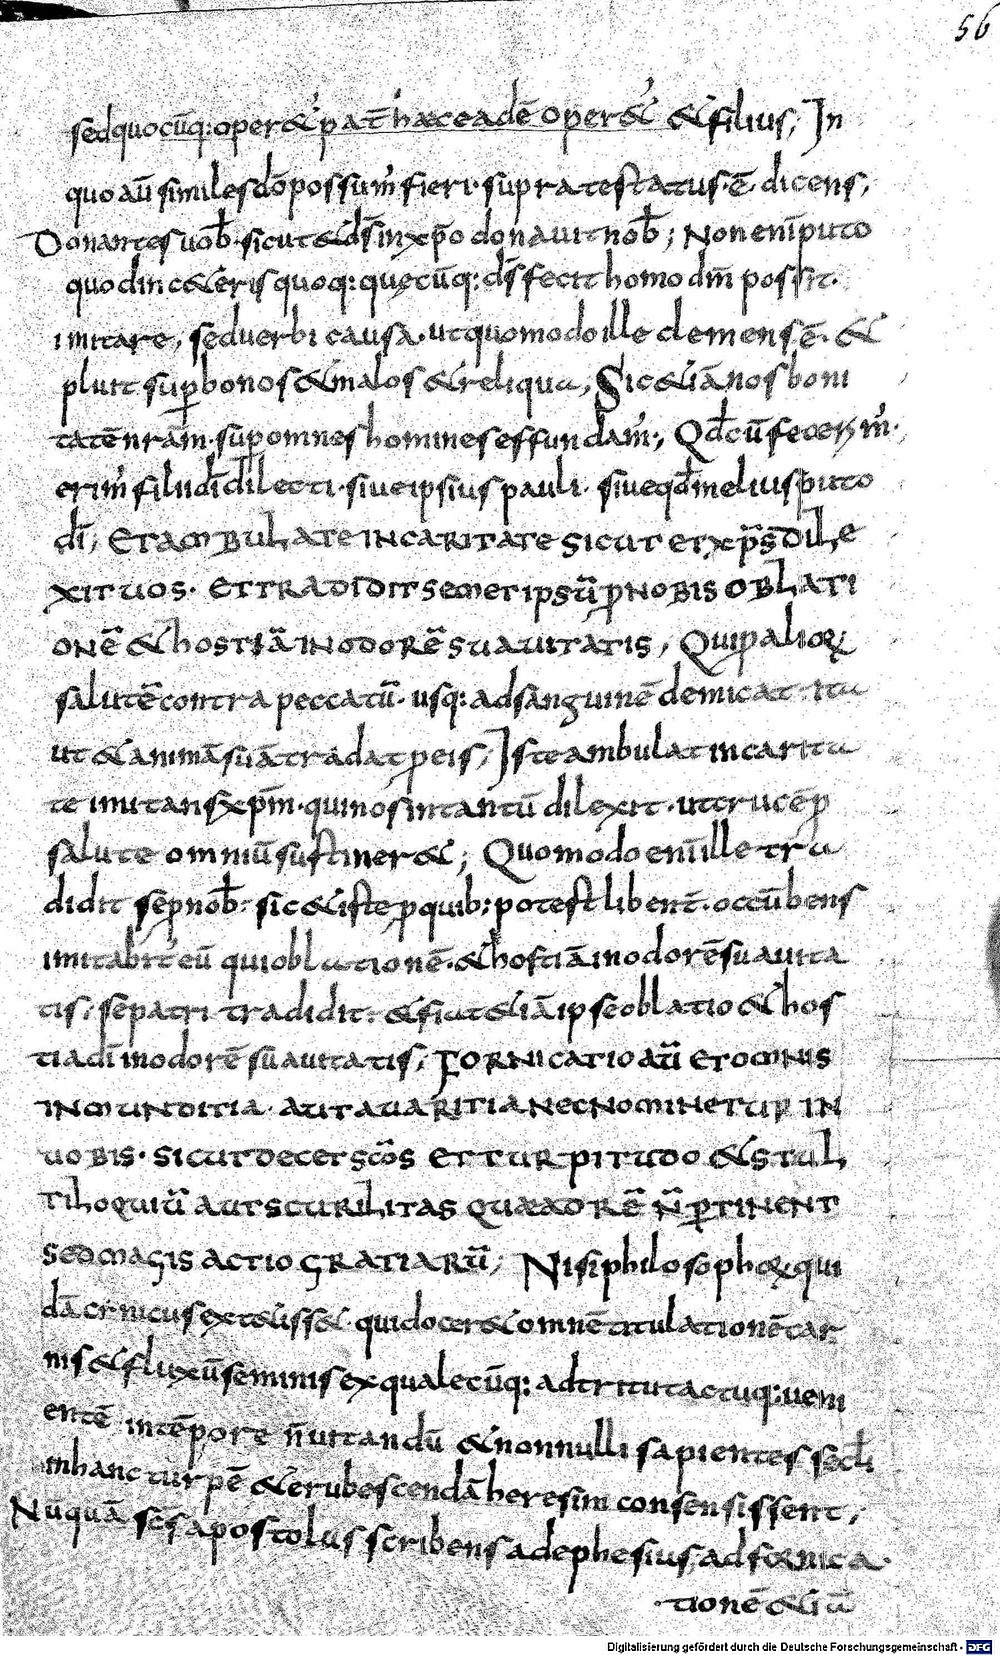 56
sed quocūq: oper& pat̄ hæc eadē oper& & filius; In
quo aū similes dō possum' fieri supra testatus ē dicens,
Donantes uob̄ sicut & d̄s in xp̄o donauit nob̄; Non enī puto
quod in c&eris quoq: quęcūq: d̄s fecit homo dm̄ possit
imitare, sed uerbi causa ut quomodo ille clemens ē &
pluit sup bonos & malos & reliqua, Sic &iā nos boni
tatē nrām sup omnes homines effundam'; Qd̄ cū fecerim'
erim' filii dī dilecti siue ipsius pauli siue qd̄ melius puto
dī, ET AMBULATE IN CARITATE SICUT ET XP̄S DILE
XIT UOS ET TRADIDIT SEMET IPSŪ P NOBIS OBLATI
ONĒ & HOSTIĀ IN ODORĒ SUAUITATIS, Qui p alioꝝ
salutē contra peccatū usq: ad sanguinē demicat ita
ut & animā suā tradat p eis, Iste ambulat in carita
te imitans xp̄m qui nos intantū dilexit ut crucē p
salute omniū sustiner&; Quomodo enī ille tra
didit se p nob̄ sic & iste p quib: potest libent̄ occūbens
imitabit' eū qui oblationē & hostiā in odorē suauita
tis, se patri tradidit & fiat &iā ipse oblatio & hos
tia dī in odorē suauitatis, FORNICATIO AŪ ET OMNIS
INMUNDITIA AUT AUARITIA NEC NOMINETUR IN
UOBIS SICUT DECET SCŌS ET TURPITUDO & STUL
TILOQUIŪ AUT SCURILITAS QUAE AD RĒ N̄ PTINENT
SED MAGIS ACTIO GRATIARŪ; Nisi philosophoꝝ qui
dā cinicus extitiss& qui docer& omnē titulationē car
nis & fluxū seminis ex qualecūq: adtritu tactuq: ueni
entē in tēpore n̄ uitandū & nonnulli sapientes sęcl̄i
in hanc turpē & erubescendā heresim consensissent,
Nuquā sc̄s apostolus scribens ad ephesius, ad fornica
tionē &iā
Digitalisierung gefördert durch die Deutsche Forschungsgemeinschaft - DFG